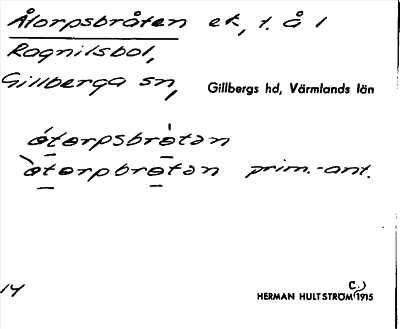 Åtorpsbråten ek, t. å 1
Ragnilsbol,
Gillberga sn,
Gillbergs hd, Värmlands län
åtɵrpsbrɵ̀tən
ɵ̀tɵrpbrɵtən prim.-ant.
14
C.)
HERMAN HULTSTRÖM 1915